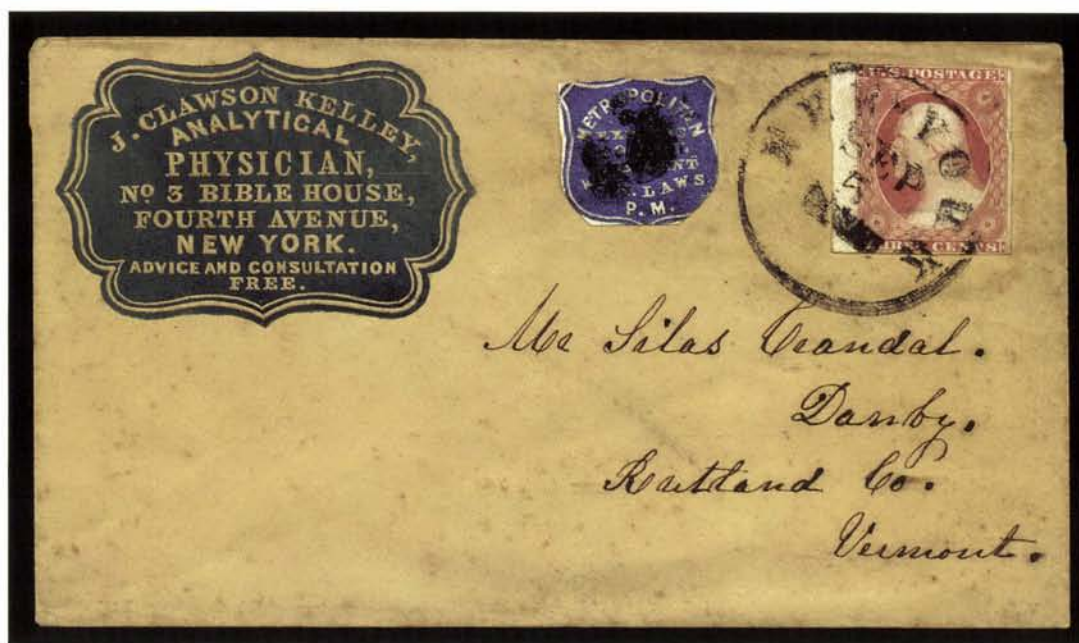 J. CLAWSON KELLEY,
ANALYTICAL
PHYSICIAN,
No 3 BIBLE HOUSE,
FOURTH AVENUE,
NEW YORK.
ADVICE AND CONSULTATION
FREE.
METROPOLITAN
LAWS
P.M.
U.S. POSTAGE
CENTS
NEW YORK
SEP
Mr Silas Crandal.
Danby.
Rutland Co.
Vermont.